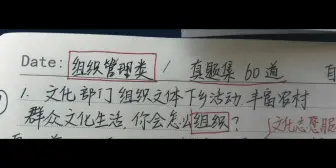 Date: 组织管理类 / 真题集60道
1. 文化部门组织文体下乡活动,丰富农村
群众文化生活,你会怎么组织?